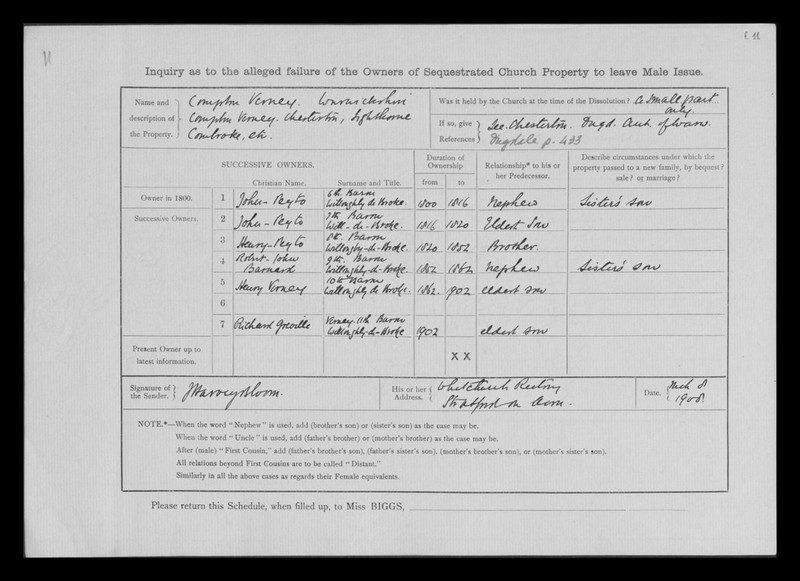 f. 11
11
Inquiry as to the alleged failure of the Owners of Sequestrated Church Property to leave Male Issue.
Name and description of the Property.
Compton Verney. Warwickshire
Compton Verney. Chesterton, Lighthorne
Combroke, etc.
Was it held by the Church at the time of the Dissolution? a small part only.
If so, give References
See Chesterton. Dugd. Ant. of Warw.
Dugdale p. 433
SUCCESSIVE OWNERS.
Christian Name. Surname and Title.
Duration of Ownership
from to
Relationship* to his or her Predecessor.
Describe circumstances under which the property passed to a new family, by bequest? sale? or marriage?
Owner in 1800. 1 John-Peyto 6th Baron Willoughby de Broke. 1800 1816 Nephew Sister's son
Successive Owners. 2 John-Peyto 7th Baron Will-de-Broke. 1816 1820 Eldest Son
3 Henry-Peyto 8th. Baron Willoughby-de-Broke. 1820 1852 Brother.
4 Robert-John Barnard 9th. Baron Willoughby-de-Broke. 1852 1862 Nephew Sister's son
5 Henry Verney 10th Baron Willoughby de Broke. 1862. 1902 eldest son
6
7 Richard Greville Verney. 11th Baron Willoughby-de-Broke 1902 eldest son
Present Owner up to latest information. X X
Signature of the Sender. J Harvey Bloom.
His or her Address. Whitchurch Rectory
Stratford on Avon.
Date. March 8
1908.
NOTE.*—When the word "Nephew" is used, add (brother's son) or (sister's son) as the case may be.
When the word "Uncle" is used, add (father's brother) or (mother's brother) as the case may be.
After (male) "First Cousin," add (father's brother's son), (father's sister's son), (mother's brother's son), or (mother's sister's son).
All relations beyond First Cousins are to be called "Distant."
Similarly in all the above cases as regards their Female equivalents.
Please return this Schedule, when filled up, to Miss BIGGS,